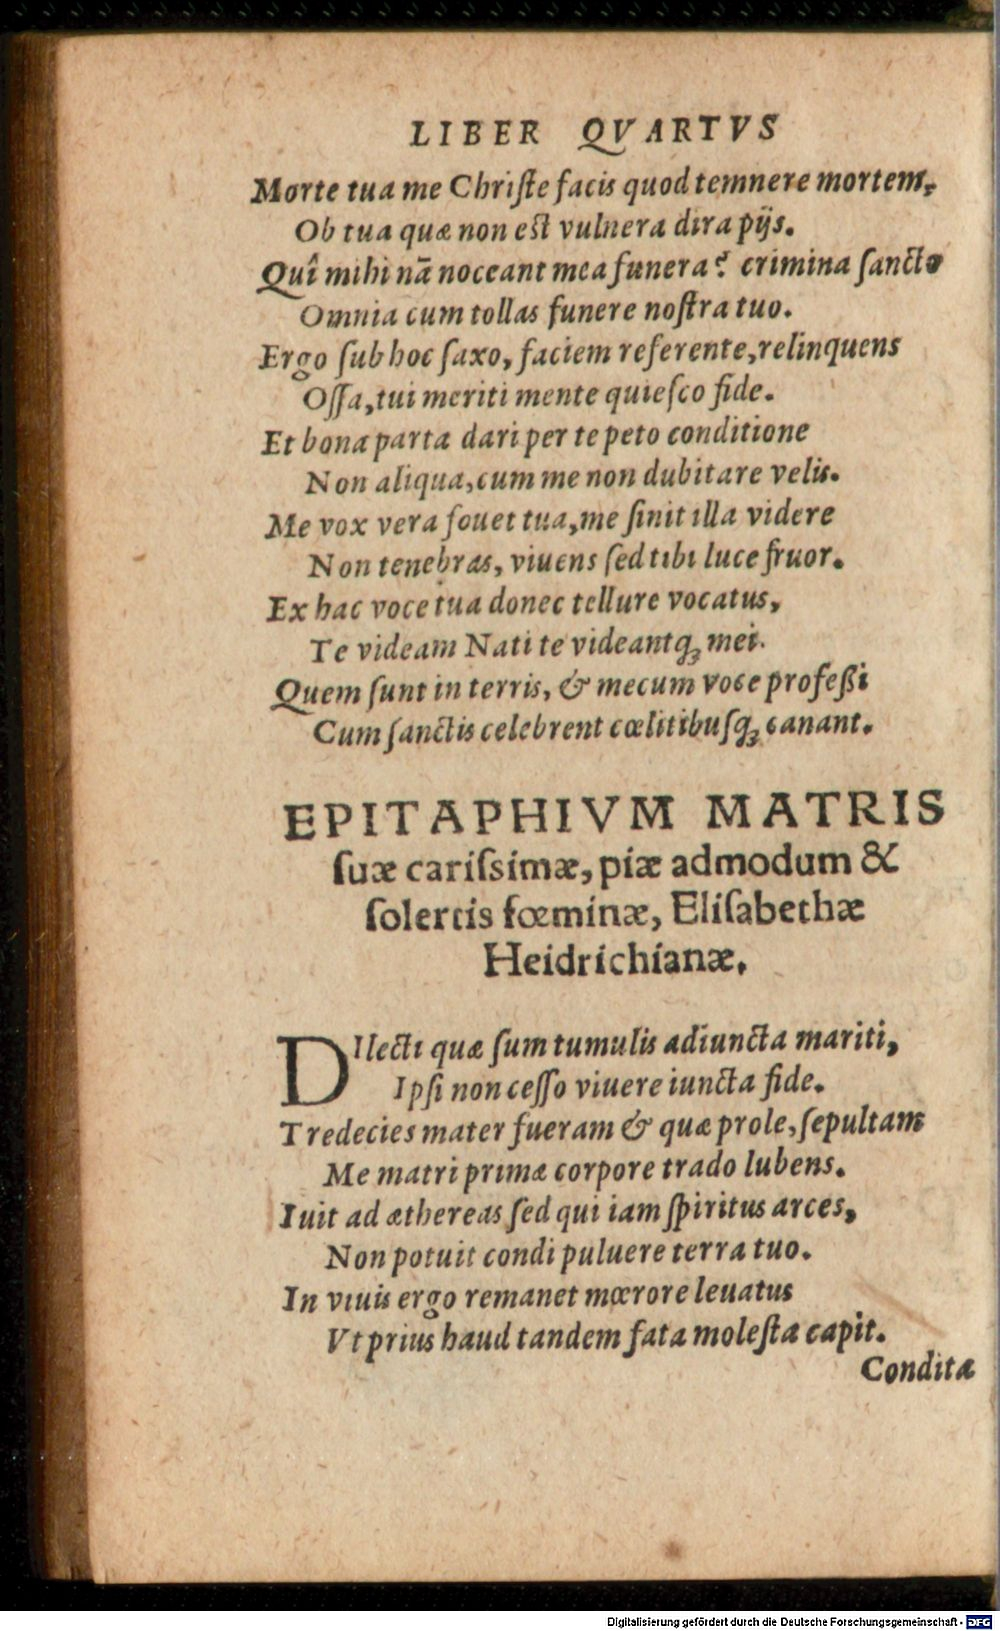 LIBER QVARTVS
Morte tua me Chriſte facis quod temnere mortem,
Ob tua quæ non est vulnera dira pijs.
Quî mihi nā noceant mea funera? crimina ſancto
Omnia cum tollas funere noſtra tuo.
Ergo ſub hoc ſaxo, faciem referente, relinquens
Oſſa, tui meriti mente quieſco fide.
Et bona parta dari per te peto conditione
Non aliqua, cum me non dubitare velis.
Me vox vera fouet tua, me ſinit illa videre
Non tenebras, viuens ſed tibi luce fruor.
Ex hac voce tua donec tellure vocatus,
Te videam Nati te videantq́ꝫ mei.
Quem ſunt in terris, & mecum voce profeßi
Cum ſanctis celebrent cœlitibuſq́ꝫ canant.
EPITAPHIVM MATRIS
ſuæ cariſsimæ, piæ admodum &
ſolertis fœminæ, Eliſabethæ
Heidrichianæ.
DIlecti quæ ſum tumulis adiuncta mariti,
Ipſi non ceſſo viuere iuncta fide.
Tredecies mater fueram & quæ prole, ſepultam
Me matri primæ corpore trado lubens.
Iuit ad æthereas ſed qui iam ſpiritus arces,
Non potuit condi puluere terra tuo.
In viuis ergo remanet mœrore leuatus
Vt prius haud tandem fata moleſta capit.
Condita
Digitalisierung gefördert durch die Deutsche Forschungsgemeinschaft - DFG